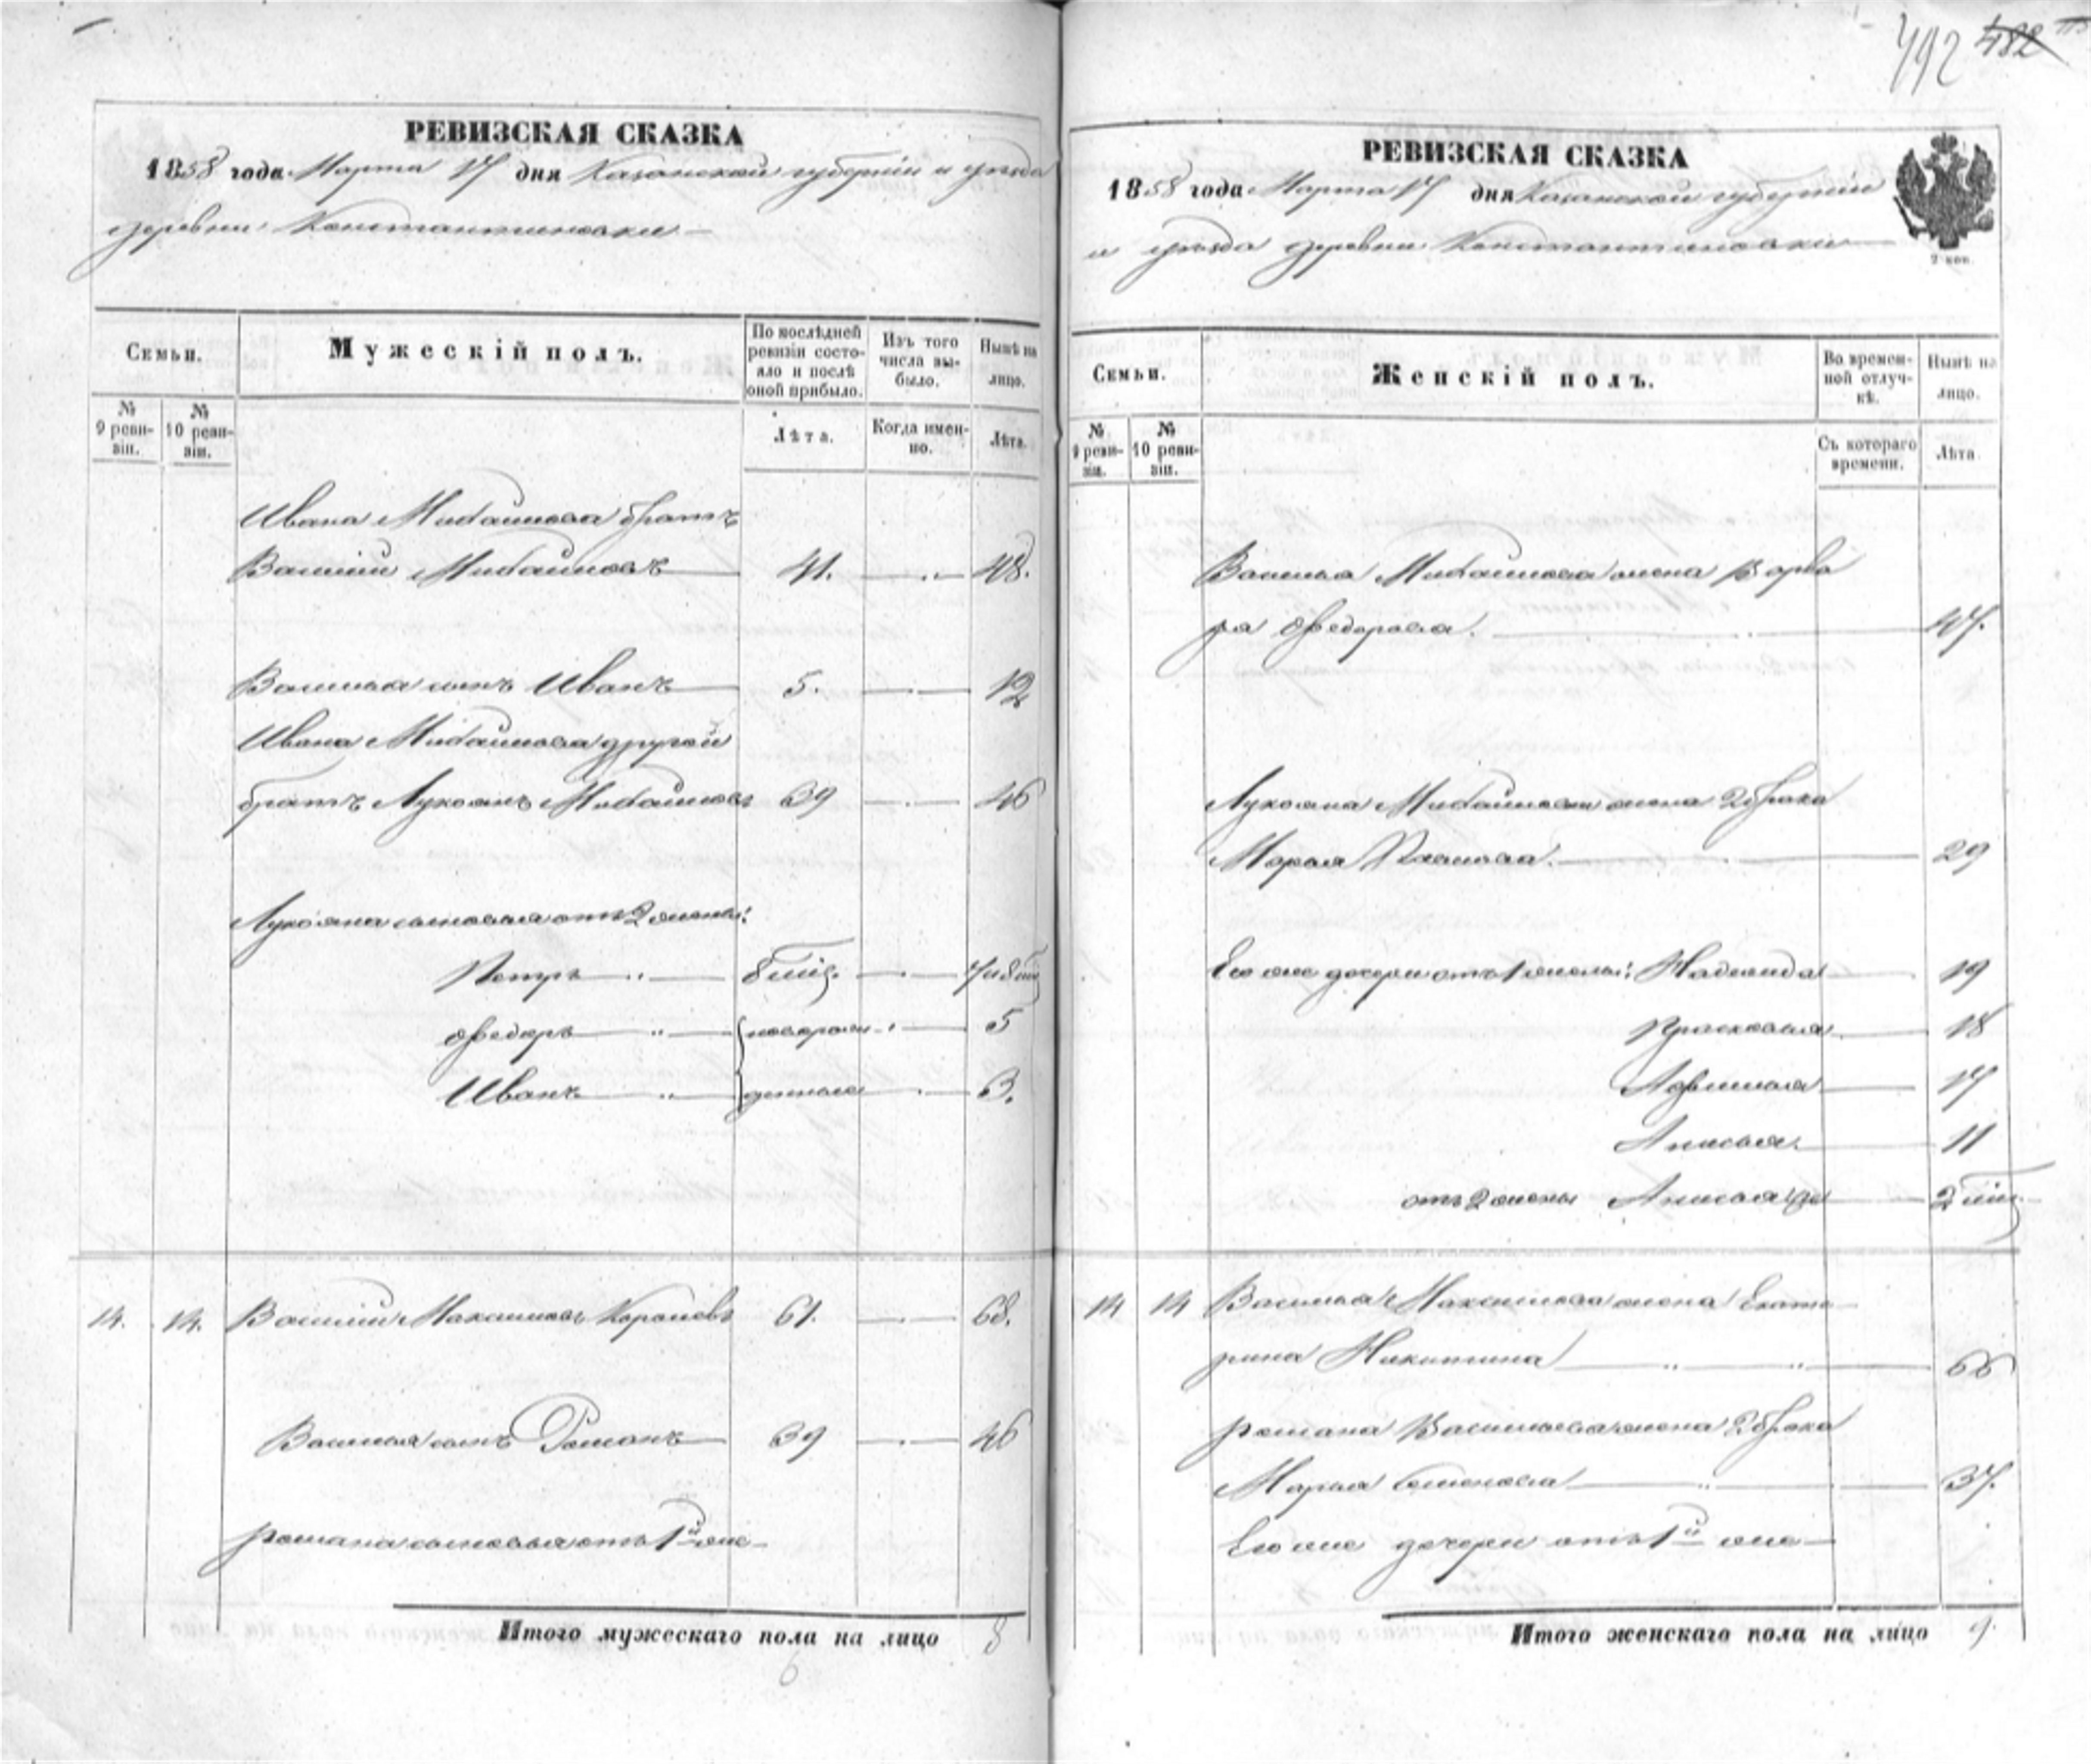 492 482
РЕВИЗСКАЯ СКАЗКА
1858 года Марта 17 дня Казанской губернии и уезда
деревни Константиновки
Семьи.
Мужескій полъ.
По послѣдней ревизіи состояло и послѣ оной прибыло.
Изъ того числа выбыло.
Нынѣ на лицо.
№ 9 ревизіи.
№ 10 ревизіи.
Лѣта.
Когда именно.
Лѣта.
Ивана Михайлова братъ
Василій Михайловъ 41. 48.
Василья сынъ Иванъ 5. 12
Ивана Михайлова другой
братъ Лукоянъ Михайловъ 39 46
Лукояна сыновья отъ 2 жены:
Петръ 8 мѣс. 7 и 8 мѣс
Федоръ новорож- 5
Иванъ денные 3.
14. 14. Василій Максимовъ 61. 68.
Василья сынъ Романъ 39 46
Романа сыновья отъ 1й же-
Итого мужескаго пола на лицо 8
6
РЕВИЗСКАЯ СКАЗКА
1858 года Марта 17 дня Казанской губерніи
и уезда деревни Константиновки
2 коп.
Семьи.
Женскій полъ.
Во временной отлучкѣ.
Нынѣ на лицо.
№ 9 ревизіи.
№ 10 ревизіи.
Съ котораго времени.
Лѣта.
Василья Михайлова жена Варва
ра Федорова. 47.
Лукояна Михайлова жена 2 брака
Марья 29
Его же дочери отъ 1 жены: Надежда 19
Прасковья 18
17
Анисья 11
отъ 2 жены Анисья 2 мѣс
14 14 Василья Максимова жена Екате
рина Никитина 66
Романа Васильева жена 2 брака
Марья Семенова 37.
Его же дочери отъ 1й же-
Итого женскаго пола на лицо 9.